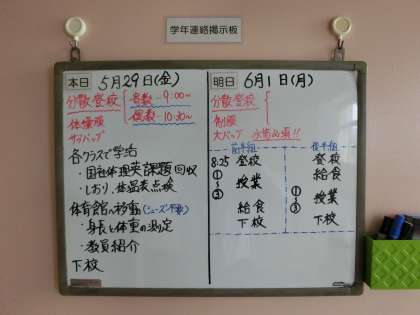 学年連絡掲示板
本日 5月29日(金)
分散登校 奇数-9:00~
偶数-10:30~
体操服
サブバッグ
各クラスで学活
・国社体理英課題回収
・しおり、体温表点検
体育館へ移動(シューズ不要)
・身長と体重の測定
・教員紹介
下校
明日 6月1日(月)
分散登校
制服
大バッグ 水筒必須!!
前半組
8:25 登校
①~③ 授業
給食
下校
後半組
登校
給食
①~③ 授業
下校